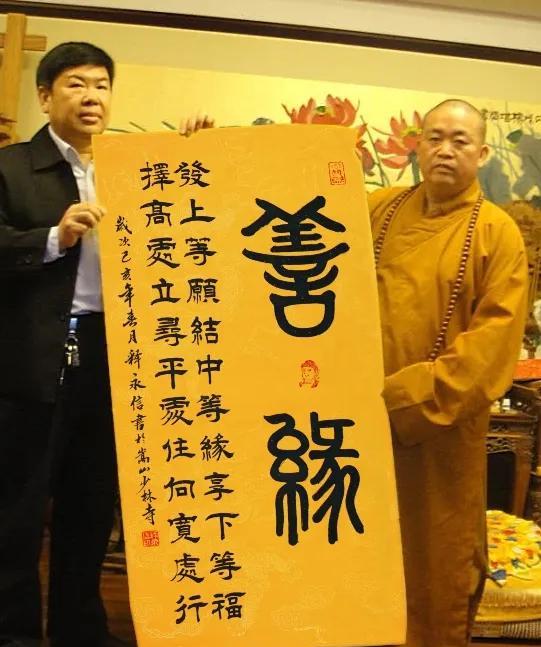 善緣
發上等願結中等緣享下等福
擇高處立尋平處住向寬處行
歲次己亥年春月釋永信書於嵩山少林寺